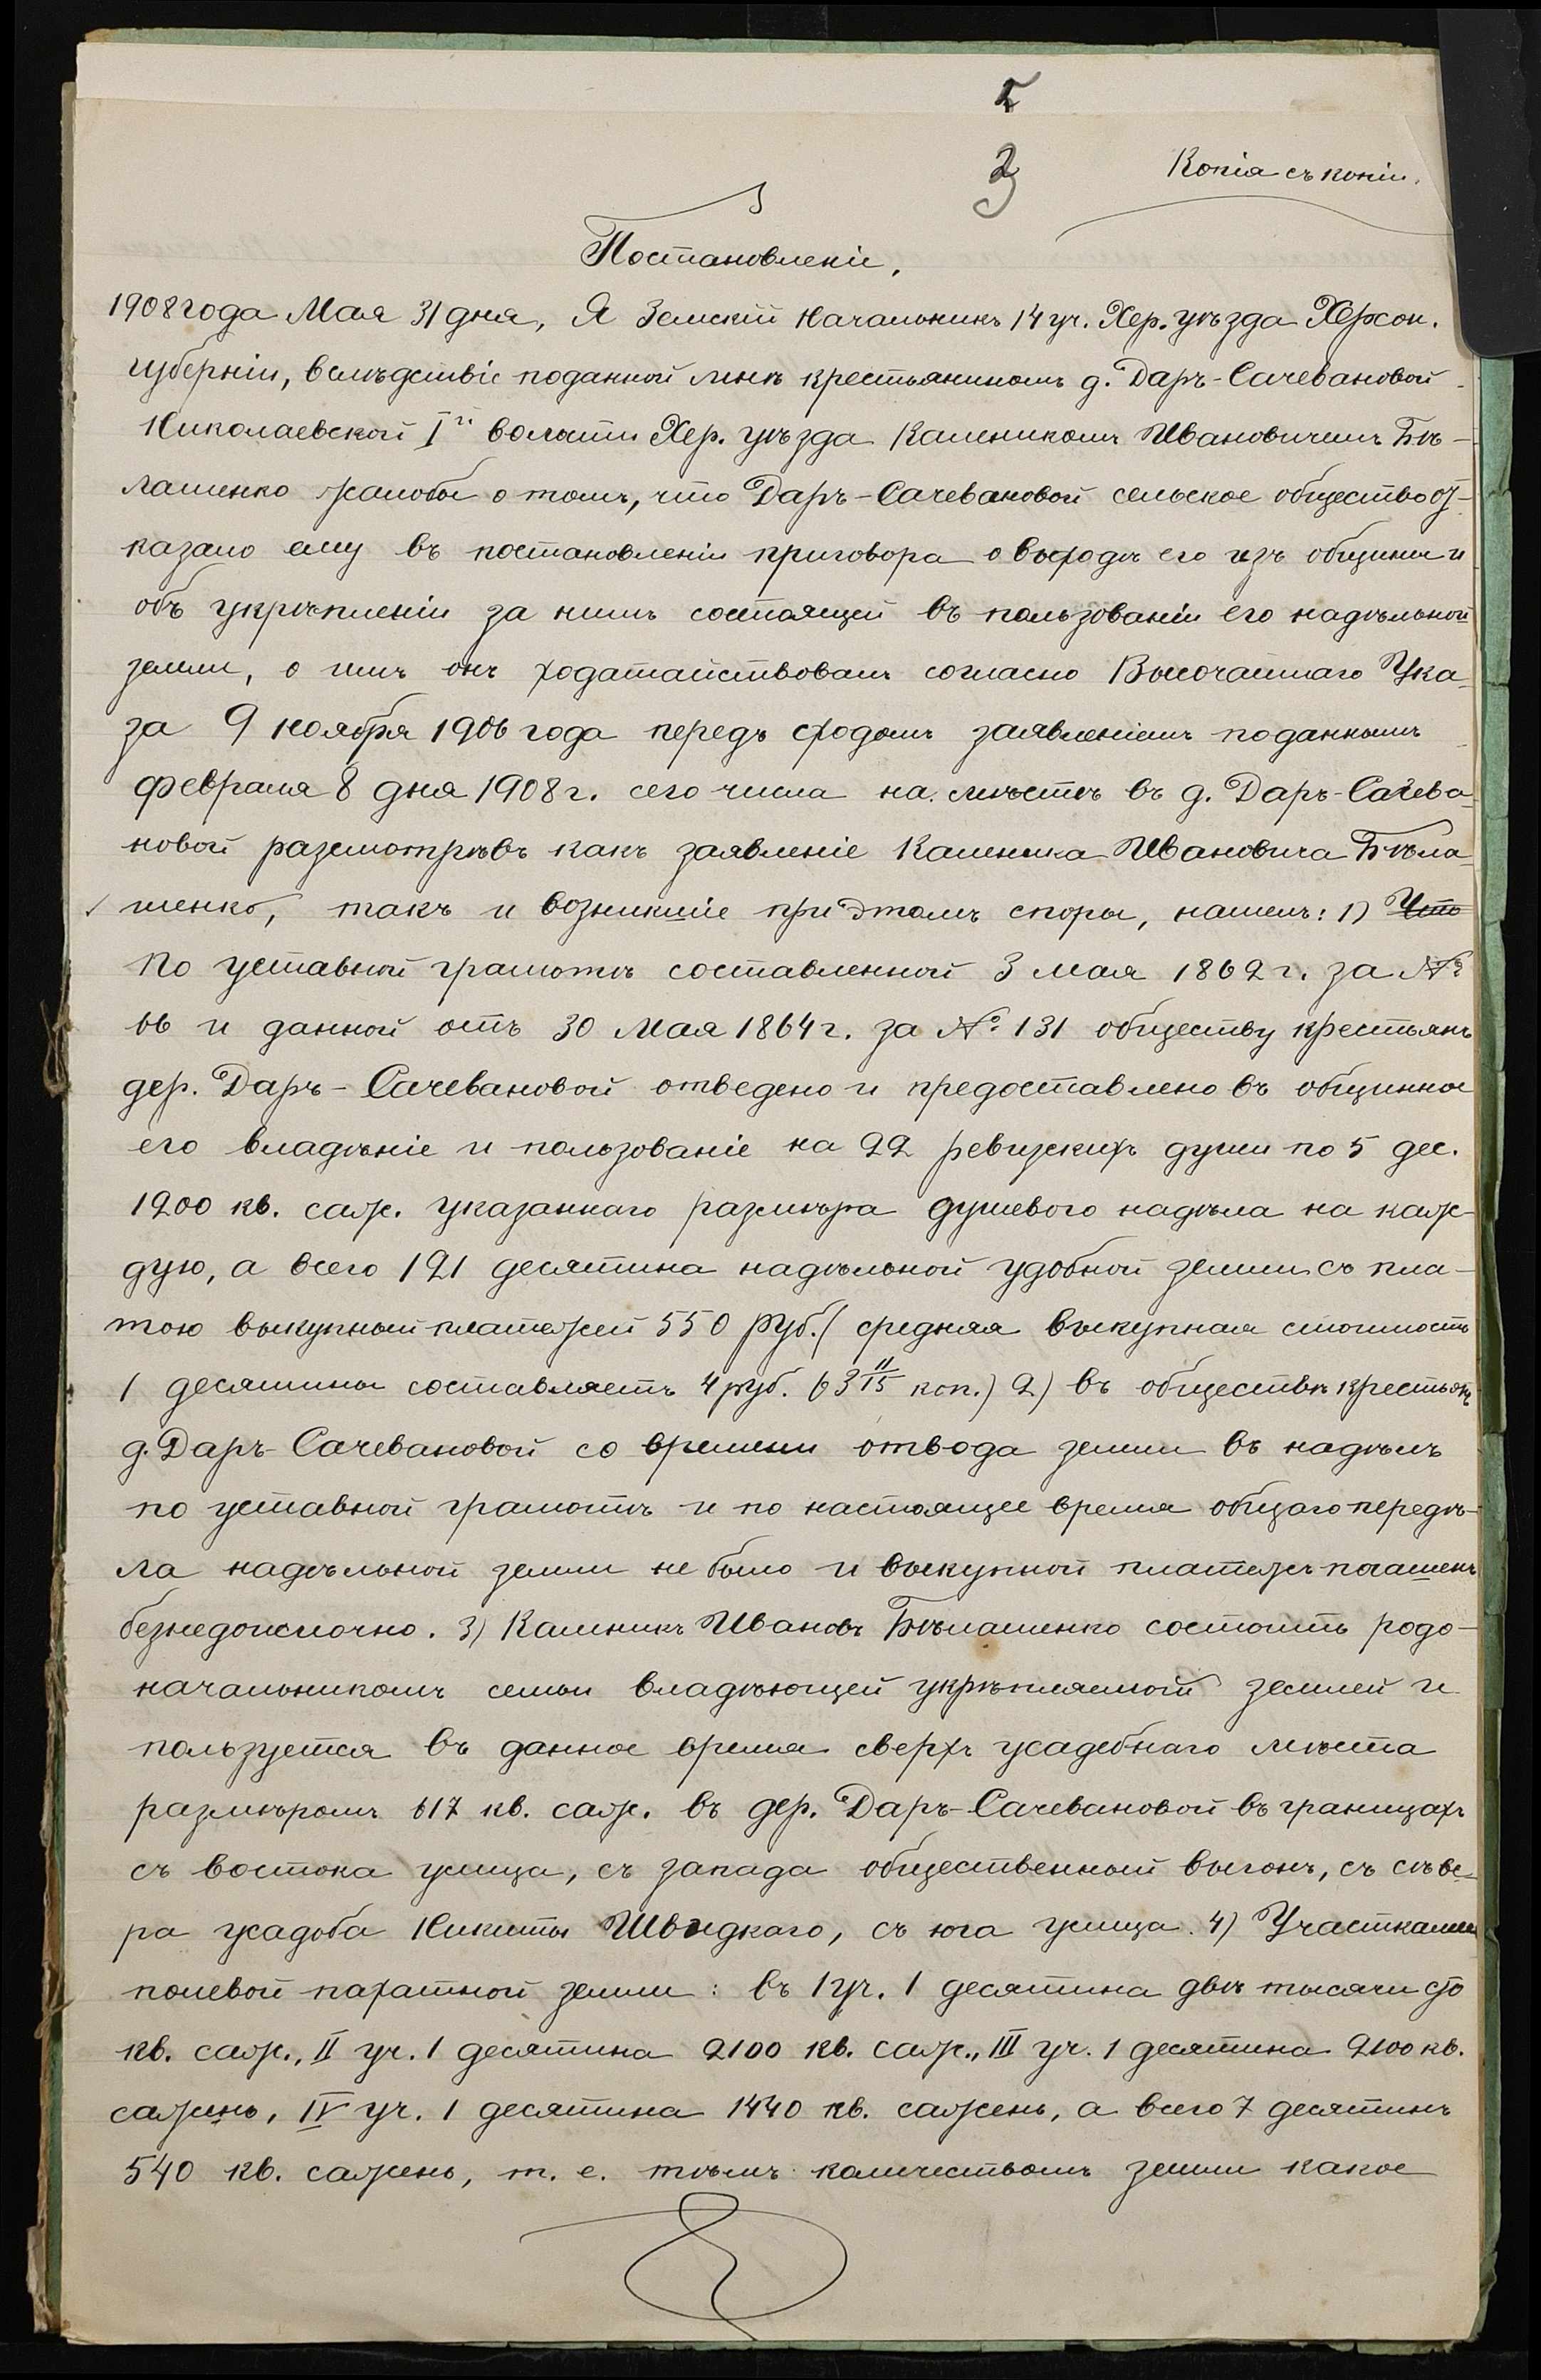 5
3
Копія съ копіи.
Постановленіе,
1908 года Мая 31 дня, Я Земскій Начальникъ 14 уч. Хер. уѣзда Херсон.
губерніи, вслѣдствіе поданной мнѣ крестьяниномъ д. Даръ-Сачевановой
Николаевской Iй волости Хер. уѣзда Каленикомъ Ивановичемъ Бѣ-
лашенко жалобы о томъ, что Даръ-Сачевановой сельское общество от-
казало ему въ постановленіи приговора о выходѣ его изъ общины и
объ укрѣпленіи за нимъ состоящей въ пользованіи его надѣльной
земли, о чемъ онъ ходатайствовалъ согласно Высочайшаго Ука-
за 9 ноября 1906 года передъ сходомъ заявленіемъ поданнымъ
февраля 8 дня 1908 г. сего числа на мѣстѣ въ д. Даръ-Сачева-
новой разсмотрѣвъ какъ заявленіе Каленика Ивановича Бѣла-
шенко, такъ и возникшіе при этомъ споры, нашелъ: 1) Что
По уставной грамотѣ составленной 3 мая 1862 г. за №
66 и данной отъ 30 Мая 1864 г. за № 131 обществу крестьянъ
дер. Даръ-Сачевановой отведено и предоставлено въ общинное
его владѣніе и пользованіе на 22 ревизскихъ души по 5 дес.
1200 кв. саж. указаннаго размѣра душевого надѣла на каж-
дую, а всего 121 десятина надѣльной удобной земли съ пла-
тою выкупныхъ платежей 550 руб. (средняя выкупная стоимость
1 десятины составляетъ 4 руб. 63 11/15 коп.) 2) въ обществѣ крестьянъ
д. Даръ-Сачевановой со времени отвода земли въ надѣлъ
по уставной грамотѣ и по настоящее время общаго передѣ-
ла надѣльной земли не было и выкупной платежъ погашенъ
безнедоимочно. 3) Каленикъ Ивановъ Бѣлашенко состоитъ родо-
начальникомъ семьи владѣющей укрѣпляемой землей и
пользуется въ данное время сверхъ усадебнаго мѣста
размѣромъ 617 кв. саж. въ дер. Даръ-Сачевановой въ границахъ
съ востока улица, съ запада общественный выгонъ, съ сѣве-
ра усадьба Никиты Швидкаго, съ юга улица. 4) Участками
полевой пахатной земли: въ 1 уч. 1 десятина двѣ тысячи сто
кв. саж., II уч. 1 десятина 2100 кв. саж., III уч. 1 десятина 2100 кв.
сажень, IV уч. 1 десятина 1440 кв. сажень, а всего 7 десятинъ
540 кв. сажень, т. е. тѣмъ количествомъ земли какое